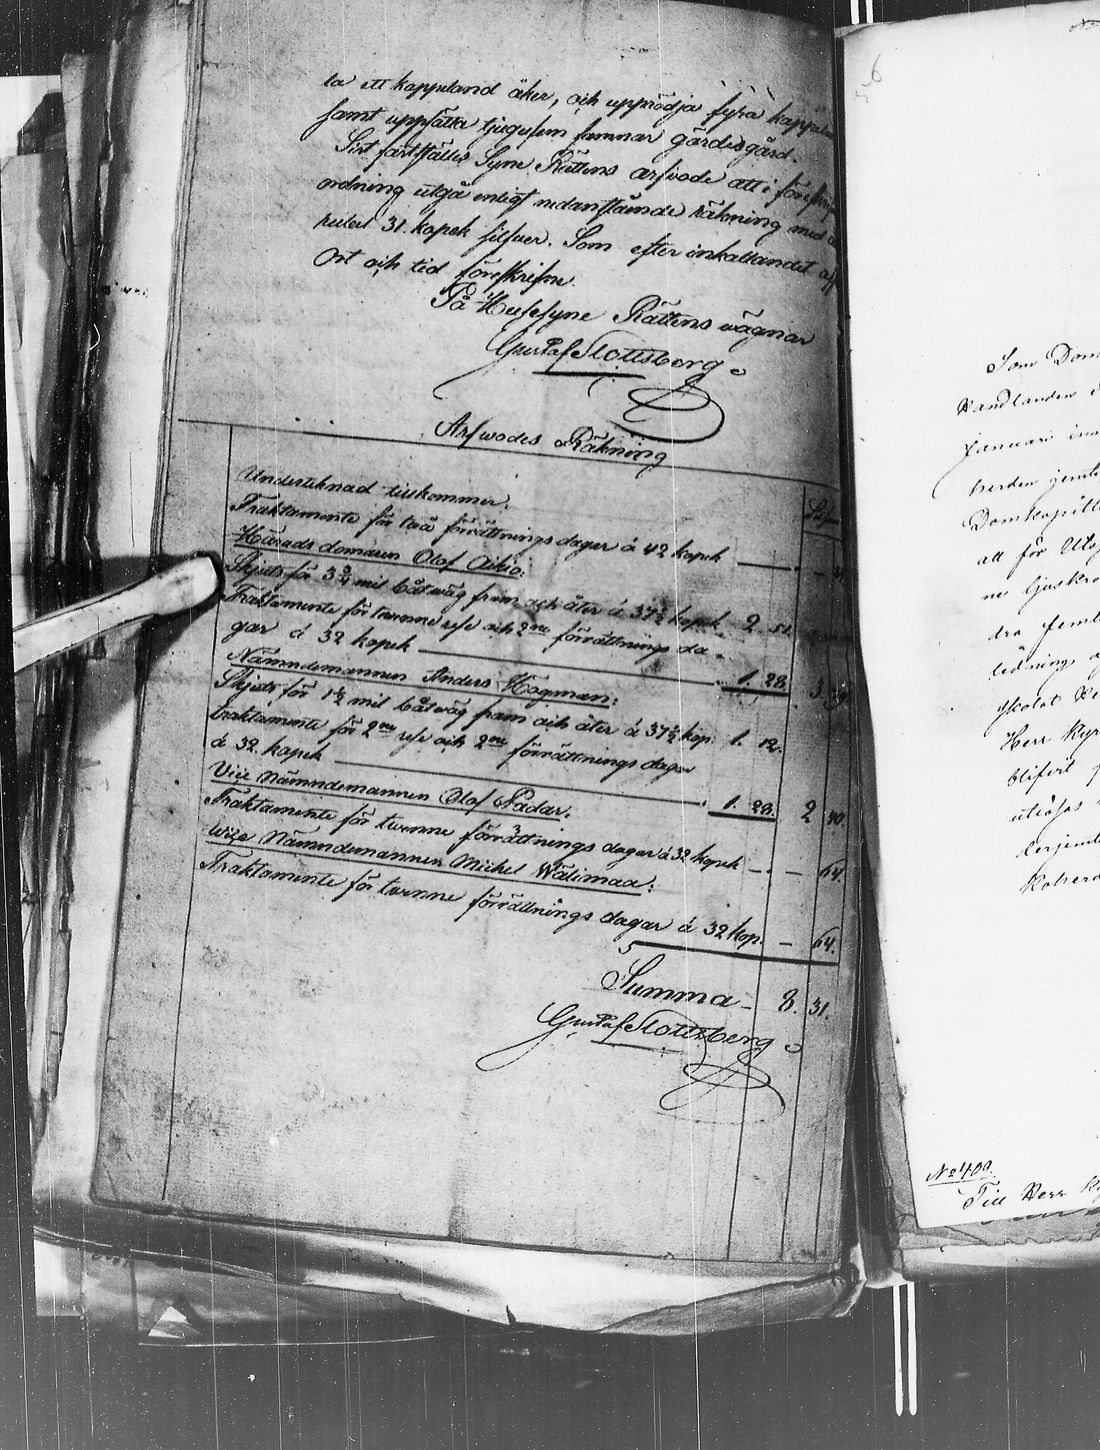 la ett kappeland åker, och upprödja fyra kappela
samt uppsätta tjugufem famnar gärdesgård.
Sist fastställes Syne Rättens arfvode att i föreskrif
ordning utgå enligt nedanstående räkning med
rubel 31. kopek silfver. Som efter inkallandet
Ort och tid föreskrifne.
På Husesyne Rättens wägnar
Gustaf Slottsberg
Arfwodes Räkning
Undertecknad tillkommer:
Traktamente för två förrättnings dagar á 42 kopek
Härads domaren Olof Aikio:
Skjuts för 3 3/4 mil båtwäg fram och åter á 37½ kopek 2. 51.
Traktamente för twenne rese och 2ne förrättnings da-
gar á 32 kopek 1. 28. 3. 79
Nämndemannen Anders Högman:
Skjuts för 1½ mil båtwäg fram och åter á 37½ kop. 1. 12.
Traktamente för 2ne rese och 2ne förrättnings dagar
á 32 kopek 1. 28. 2 40
Vice Nämndemannen Olof Padar.
Traktamente för twenne förrättnings dagar á 32 kopek — 64.
Wice Nämndemannen Michel Wälimaa:
Traktamente för twenne förrättnings dagar á 32 kop. — 64.
Summa 8. 31.
Gustaf Slottsberg
6
Som Dom
Januari inn
herden jemte
Domkapitl
att för
ne ljuskro
dra femt
ledning
Herr Kyr
blifvit
utlösas
derjemte
No 400.
Till Herr Ky